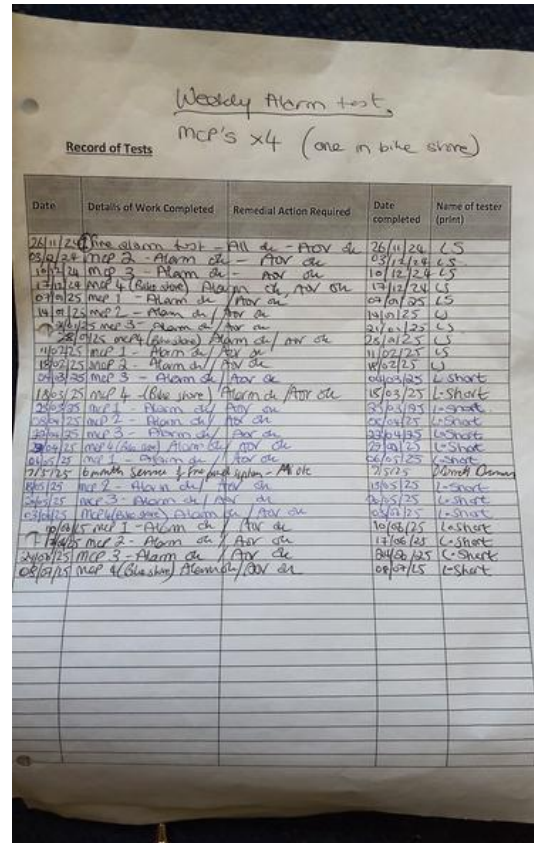 Weekly Alarm test
MCP's x4 (one in bike store)
Record of Tests
Date Details of Work Completed Remedial Action Required Date completed Name of tester (print)
26/11/24 Fire alarm test - All ok - AOV ok 26/11/24 LS
03/12/24 MCP 2 - Alarm ok - AOV ok 03/12/24 LS
10/12/24 MCP 3 - Alarm ok - AOV ok 10/12/24 LS
17/12/24 MCP 4 (Bike store) Alarm ok, AOV ok 17/12/24 LS
07/01/25 MCP 1 - Alarm ok / AOV ok 07/01/25 LS
14/01/25 MCP 2 - Alarm ok / AOV ok 14/01/25 LS
21/01/25 MCP 3 - Alarm ok / AOV ok 21/01/25 LS
28/01/25 MCP 4 (Bike store) / Alarm ok / AOV ok 28/01/25 LS
11/02/25 MCP 1 - Alarm ok / AOV ok 11/02/25 LS
18/02/25 MCP 2 - Alarm ok / AOV ok 18/02/25 LS
MCP 3 - Alarm ok / AOV ok L. Short
18/03/25 MCP 4 - (Bike store) / Alarm ok / AOV ok 18/03/25 L. Short
25/03/25 MCP 1 - Alarm ok / AOV ok 25/03/25 L. Short
MCP 2 - Alarm ok / AOV ok L. Short
MCP 3 - Alarm ok / AOV ok L. Short
MCP 4 (Bike store) Alarm ok / AOV ok L. Short
06/05/25 MCP 1 - Alarm ok / AOV ok 06/05/25 L. Short
7/5/25 6 month service of fire panel system - All ok 7/5/25
MCP 2 - Alarm ok / AOV ok L. Short
MCP 3 - Alarm ok / AOV ok L. Short
MCP 4 (Bike store) Alarm ok / AOV ok L. Short
10/06/25 MCP 1 - Alarm ok / AOV ok 10/06/25 L. Short
17/06/25 MCP 2 - Alarm ok / AOV ok 17/06/25 L. Short
24/06/25 MCP 3 - Alarm ok / AOV ok 24/06/25 L. Short
08/07/25 MCP 4 (Bike store) Alarm ok / AOV ok 08/07/25 L. Short